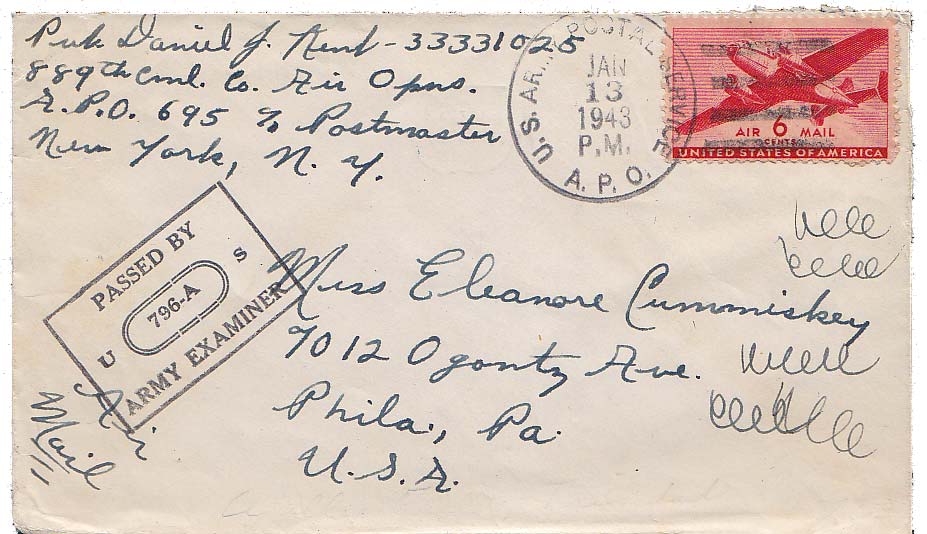 Pvt. Daniel J. Kent - 33331025
889th Cml. Co. Air Opns.
A.P.O. 695 % Postmaster
New York, N. Y.
U.S. ARMY POSTAL SERVICE
JAN
13
1943
P.M.
A. P. O.
AIR 6 MAIL
CENTS
UNITED STATES OF AMERICA
PASSED BY
U 796-A S
ARMY EXAMINER
Air
Mail
Miss Eleanore Cummiskey
7012 Ogontz Ave.
Phila., Pa.
U.S.A.